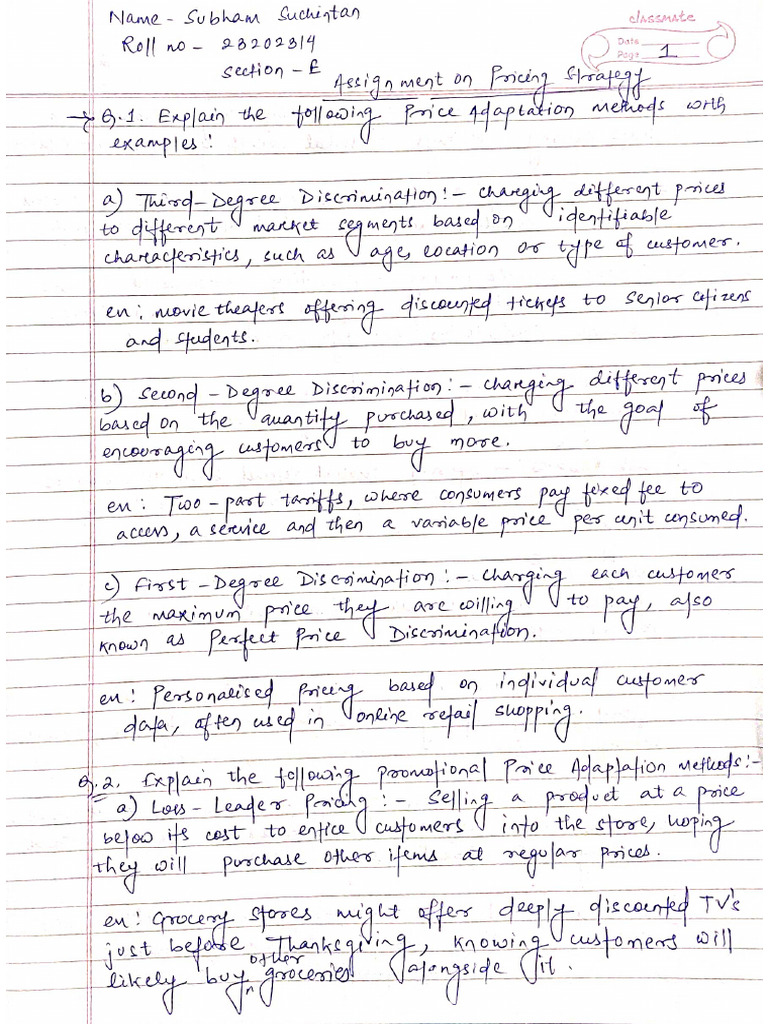 Name - Subham Suchintan
Roll no - 23202314
Section - E
classmate
Date
Page 1
Assignment on Pricing Strategy
→ Q.1. Explain the following Price Adaptation methods with
examples :
a) Third-Degree Discrimination :- charging different prices
to different market segments based on identifiable
characteristics, such as age, location or type of customer.
en : movie theaters offering discounted tickets to senior citizens
and students.
b) Second-Degree Discrimination :- charging different prices
based on the quantity purchased, with the goal of
encouraging customers to buy more.
en : Two-part tariffs, where consumers pay fixed fee to
access, a service and then a variable price per unit consumed.
c) First-Degree Discrimination :- Charging each customer
the maximum price they are willing to pay, also
known as Perfect Price Discrimination.
en : Personalised Pricing based on individual customer
data, often used in online retail shopping.
Q.2. Explain the following promotional Price Adaptation methods:-
a) Loss-Leader Pricing :- Selling a product at a price
below its cost to entice customers into the store, hoping
they will purchase other items at regular prices.
en : Grocery stores might offer deeply discounted TV's
just before Thanksgiving, knowing customers will
likely buy other groceries alongside it.